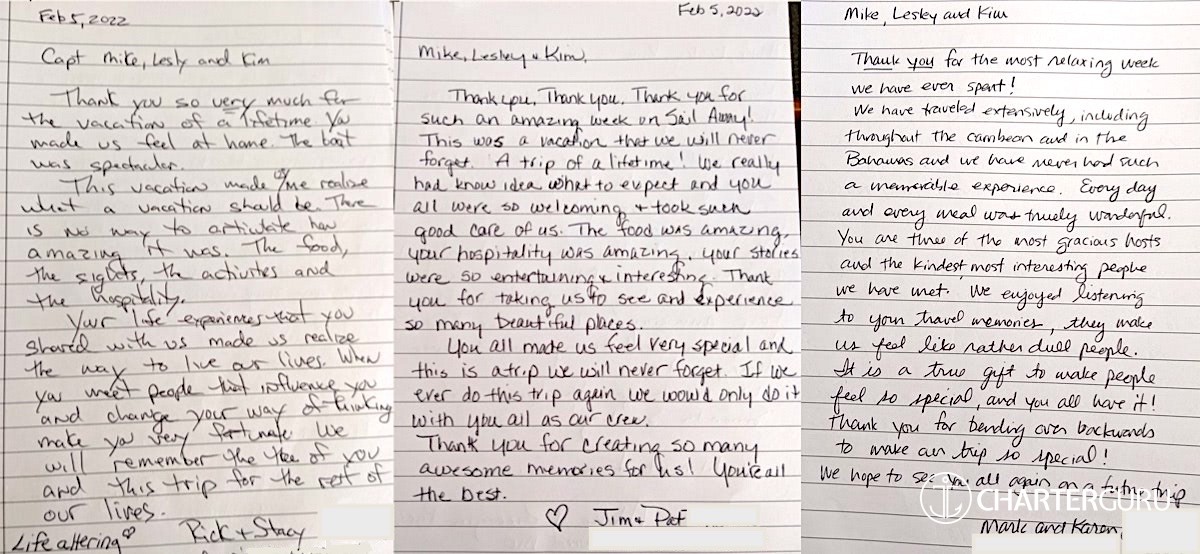 Feb 5, 2022
Capt Mike, Lesly and Kim
Thank you so very much for
the vacation of a lifetime You
made us feel at home. The boat
was spectacular.
This vacation made me realize
what a vacation should be. There
is no way to articulate how
amazing it was. The food,
the sights, the activites and
the hospitality.
Your life experiences that you
shared with us made us realize
the way to live our lives. When
you meet people that influence you
and change your way of thinking
make you very fortunate. We
will remember the of you
and this trip for the rest of
our lives.
Life altering ♡ Rick + Stacy
Feb 5, 2022
Mike, Lesley + Kim,
Thank you, Thank you, Thank you for
such an amazing week on Sail Away!
This was a vacation that we will never
forget. A trip of a lifetime! We really
had know idea what to expect and you
all were so welcoming + took such
good care of us. The food was amazing,
your hospitality was amazing, your stories
were so entertaining & interesting. Thank
you for taking us to see and experience
so many beautiful places.
You all made us feel very special and
this is a trip we will never forget. If we
ever do this trip again we would only do it
with you all as our crew.
Thank you for creating so many
awesome memories for us! You're all
the best.
♡ Jim + Pat
Mike, Lesley and Kim
Thank you for the most relaxing week
we have ever spent!
We have traveled extensively, including
throughout the carribean and in the
Bahamas and we have never had such
a memorable experience. Every day
and every meal was truely wonderful.
You are three of the most gracious hosts
and the kindest, most interesting people
we have met. We enjoyed listening
to your travel memories, they make
us feel like rather dull people.
It is a true gift to make people
feel so special, and you all have it!
Thank you for bending over backwards
to make our trip so special!
We hope to see you all again on a future trip
CHARTERGURU
Mark and Karen